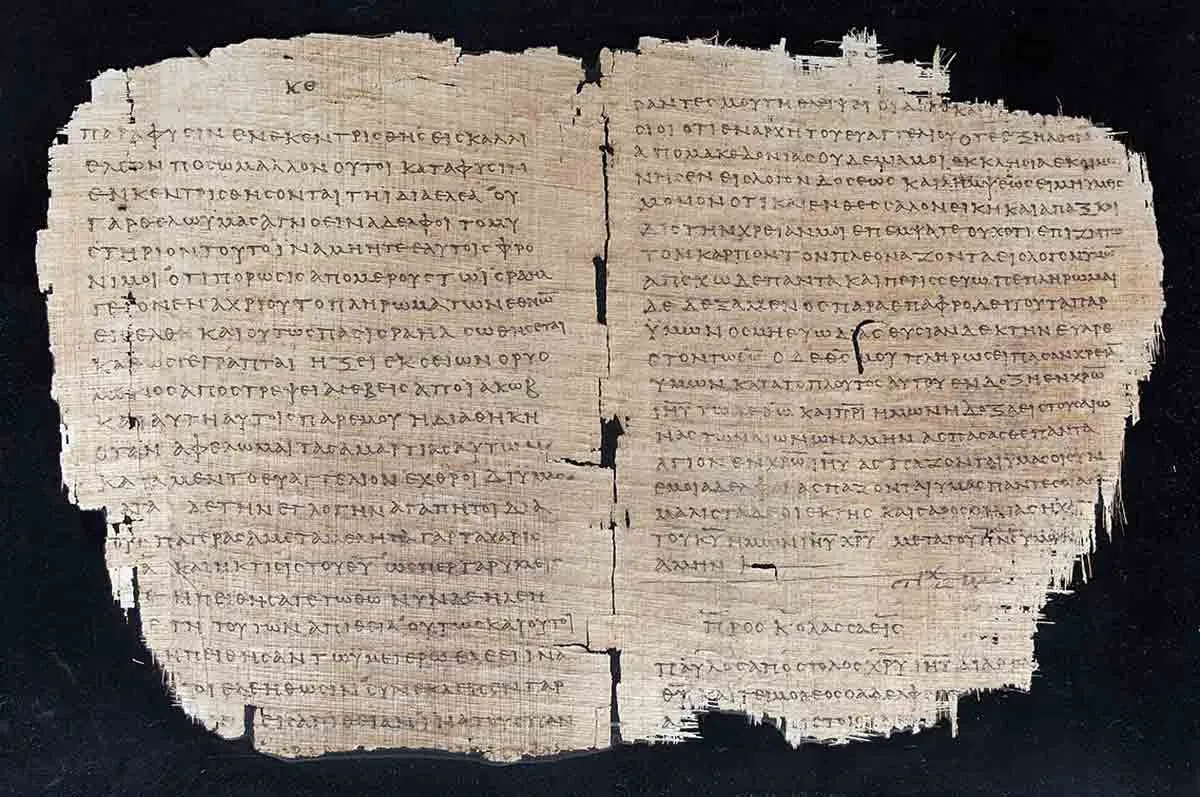 ΚΘ
ΠΑΡΑΦΥCΙΝΕΝΕΚΕΝΤΡΙCΘΗCΕΙCΚΑΛΛΙ
ΕΛΕΟΝΠΟCΩΜΑΛΛΟΝΟΥΤΟΙΚΑΤΑΦΥCΙΝ
ΕΝΚΕΝΤΡΙCΘΗCΟΝΤΑΙΤΗΙΔΙΑΕΛΕΑΟΥ
ΓΑΡΘΕΛΩΥΜΑCΑΓΝΟΕΙΝΑΔΕΛΦΟΙΤΟΜΥ
CΤΗΡΙΟΝΤΟΥΤΟΙΝΑΜΗΗΤΕΕΑΥΤΟΙCΦΡΟ
ΝΙΜΟΙΟΤΙΠΟΡΩCΙCΑΠΟΜΕΡΟΥCΤΩΙCΡΑΗΛ
ΓΕΓΟΝΕΝΑΧΡΙΟΥΤΟΠΛΗΡΩΜΑΤΩΝΕΘΝΩ̅
ΕΙCΕΛΘΗΚΑΙΟΥΤΩCΠΑCΙCΡΑΗΛCΩΘΗCΕΤΑΙ
ΚΑΘΩCΓΕΓΡΑΠΤΑΙΗΞΕΙΕΚCΕΙΩΝΟΡΥΟ
ΜΕΝΟCΑΠΟCΤΡΕΨΕΙΑCΕΒΕΙCΑΠΟΙΑΚΩΒ
ΚΑΙΑΥΤΗΑΥΤΟΙCΠΑΡΕΜΟΥΗΔΙΑΘΗΚΗ
ΟΤΑΝΑΦΕΛΩΜΑΙΤΑCΑΜΑΡΤΙΑCΑΥΤΩΝ
ΚΑΤΑΜΕΝΤΟΕΥΑΓΓΕΛΙΟΝΕΧΘΡΟΙΔΙΥΜΑC
ΚΑΤΑΔΕΤΗΝΕΓΛΟΓΗΝΑΓΑΠΗΤΟΙΔΙΑ
ΤΟΥCΠΑΤΕΡΑCΑΜΕΤΑΜΕΛΗΤΑΓΑΡΤΑΧΑΡΙC
ΚΑΙΗΚΛΗCΙCΤΟΥΘΥ̅ΩCΠΕΡΓΑΡΥΜΕΙC
ΗΠΕΙΘΗCΑΤΕΤΩΘΩ̅ΝΥΝΔΕΗΛΕΗ
ΤΗΤΟΥΤΩΝΑΠΙΘΕΙΑΟΥΤΩCΚΑΙΟΥΤΟΙ
ΗΠΕΙΘΗCΑΝΤΩΥΜΕΤΕΡΩΕΛΕΕΙΙΝΑ
ΕΛΕΗΘΩCΙΝCΥΝΕΚΛΕΙCΕΝΓΑΡ
ΕΙCΑΠΙΘΕΙΑΝ
ΟΙΟΙΟΤΙΕΝΑΡΧΗΤΟΥΕΥΑΓΓΕΛΙΟΥΟΤΕΕΞΗΛΘΟΝ
ΑΠΟΜΑΚΕΔΟΝΙΑCΟΥΔΕΜΙΑΜΟΙΕΚΚΛΗCΙΑΕΚΟΙΝΩ
ΝΗCΕΝΕΙCΛΟΓΟΝΔΟCΕΩCΚΑΙΛΗΜΨΕΩCΕΙΜΗΥΜΕΙC
ΜΟΝΟΝΟΤΙΚΑΙΕΝΘΕCCΑΛΟΝΕΙΚΗΚΑΙΑΠΑΞΚΑΙ
ΔΙCΤΗΝΧΡΕΙΑΝΜΟΙΕΠΕΜΨΑΤΕΟΥΧΟΤΙΕΠΙΖΗΤΩ
ΤΟΝΚΑΡΠΟΝΤΟΝΠΛΕΟΝΑΖΟΝΤΑΕΙCΛΟΓΟΝΥΜΩΝ
ΑΠΕΧΩΔΕΠΑΝΤΑΚΑΙΠΕΡΙCCΕΥΩΠΕΠΛΗΡΩΜΑΙ
ΔΕΔΕΞΑΜΕΝΟCΠΑΡΑΕΠΑΦΡΟΔΕΙΤΟΥΤΑΠΑΡ
ΥΜΩΝΟCΜΗΕΥΩΔΙΑCΘΥCΙΑΝΔΕΚΤΗΝΕΥΑΡΕ
CΤΟΝΤΩΘΩ̅ΟΔΕΘC̅ΜΟΥΠΛΗΡΩCΕΙΠΑCΑΝΧΡΕΙΑΝ
ΥΜΩΝΚΑΤΑΤΟΠΛΟΥΤΟCΑΥΤΟΥΕΝΔΟΞΗΕΝΧΡΩ̅
ΙΗΥ̅ΤΩΔΕΘΩ̅ΚΑΙΠΡΙ̅ΗΜΩΝΗΔΟΞΑΕΙCΤΟΥCΑΙΩ
ΝΑCΤΩΝΑΙΩΝΩΝΑΜΗΝΑCΠΑCΑCΘΕΠΑΝΤΑ
ΑΓΙΟΝΕΝΧΡΩ̅ΙΗΥ̅ΑCΠΑΖΟΝΤΑΙΥΜΑCΟΙCΥΝ
ΕΜΟΙΑΔΕΛΦΟΙΑCΠΑΖΟΝΤΑΙΥΜΑCΠΑΝΤΕCΟΙΑΓΙΟΙ
ΜΑΛΙCΤΑΔΕΟΙΕΚΤΗCΚΑΙCΑΡΟCΟΙΚΙΑCΗΧΑΡΙC
ΤΟΥΚΥ̅ΗΜΩΝΙΗΥ̅ΧΡΥ̅ΜΕΤΑΤΟΥΠΝC̅ΥΜΩΝ
ΑΜΗΝ
ΠΡΟC ΚΟΛΑCCΑΕΙC
ΠΑΥΛΟCΑΠΟCΤΟΛΟCΧΡΥ̅ΙΗΥ̅ΔΙΑΘΕΛ
ΘΥ̅ΚΑΙΤΕΙΜΟΘΕΟCΟΑΔΕΛΦΟC